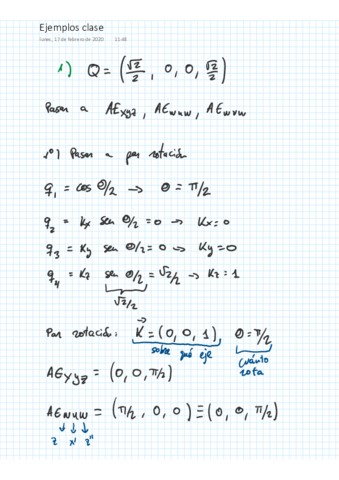 Ejemplos clase
lunes, 17 de febrero de 2020 11:48
1) Q = (√2/2, 0, 0, √2/2)
Pasar a AExyz, AEwuw, AEwvw
1º) Pasar a par rotación
q₁ = cos θ/2 → θ = π/2
q₂ = Kx sen θ/2 = 0 → Kx = 0
q₃ = Ky sen θ/2 = 0 → Ky = 0
q₄ = Kz sen θ/2 = √2/2 → Kz = 1
√2/2
Par rotación: K⃗ = (0, 0, 1), θ = π/2
sobre qué eje cuánto rota
AExyz = (0, 0, π/2)
AEwuw = (π/2, 0, 0) ≡ (0, 0, π/2)
z x' z''